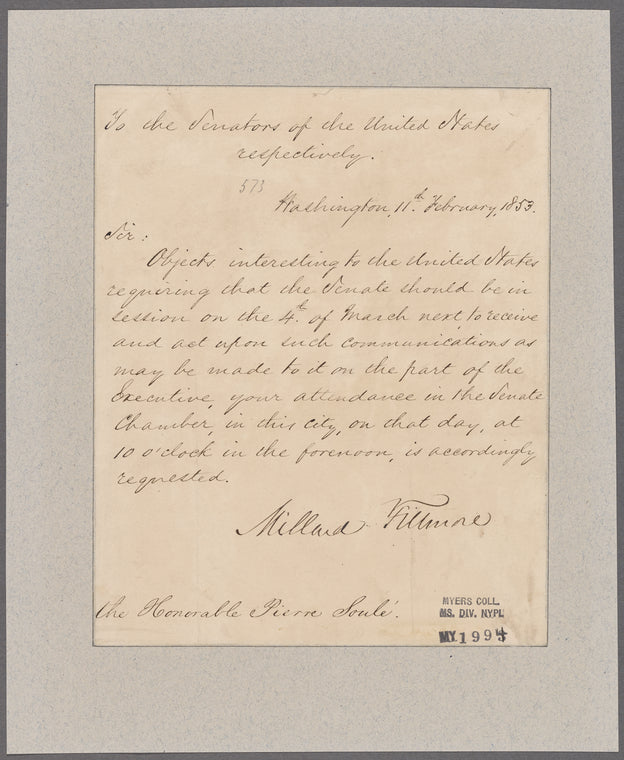 To the Senators of the United States
respectively.
573
Washington, 11th. February, 1853.
Sir:
Objects interesting to the United States
requiring that the Senate should be in
session on the 4th. of March next, to receive
and act upon such communications as
may be made to it on the part of the
Executive, your attendance in the Senate
Chamber, in this city, on that day, at
10 o'clock in the forenoon, is accordingly
requested.
Millard Fillmore
the Honorable Pierre Soulé.
MYERS COLL.
MS. DIV. NYPL
MY 1994